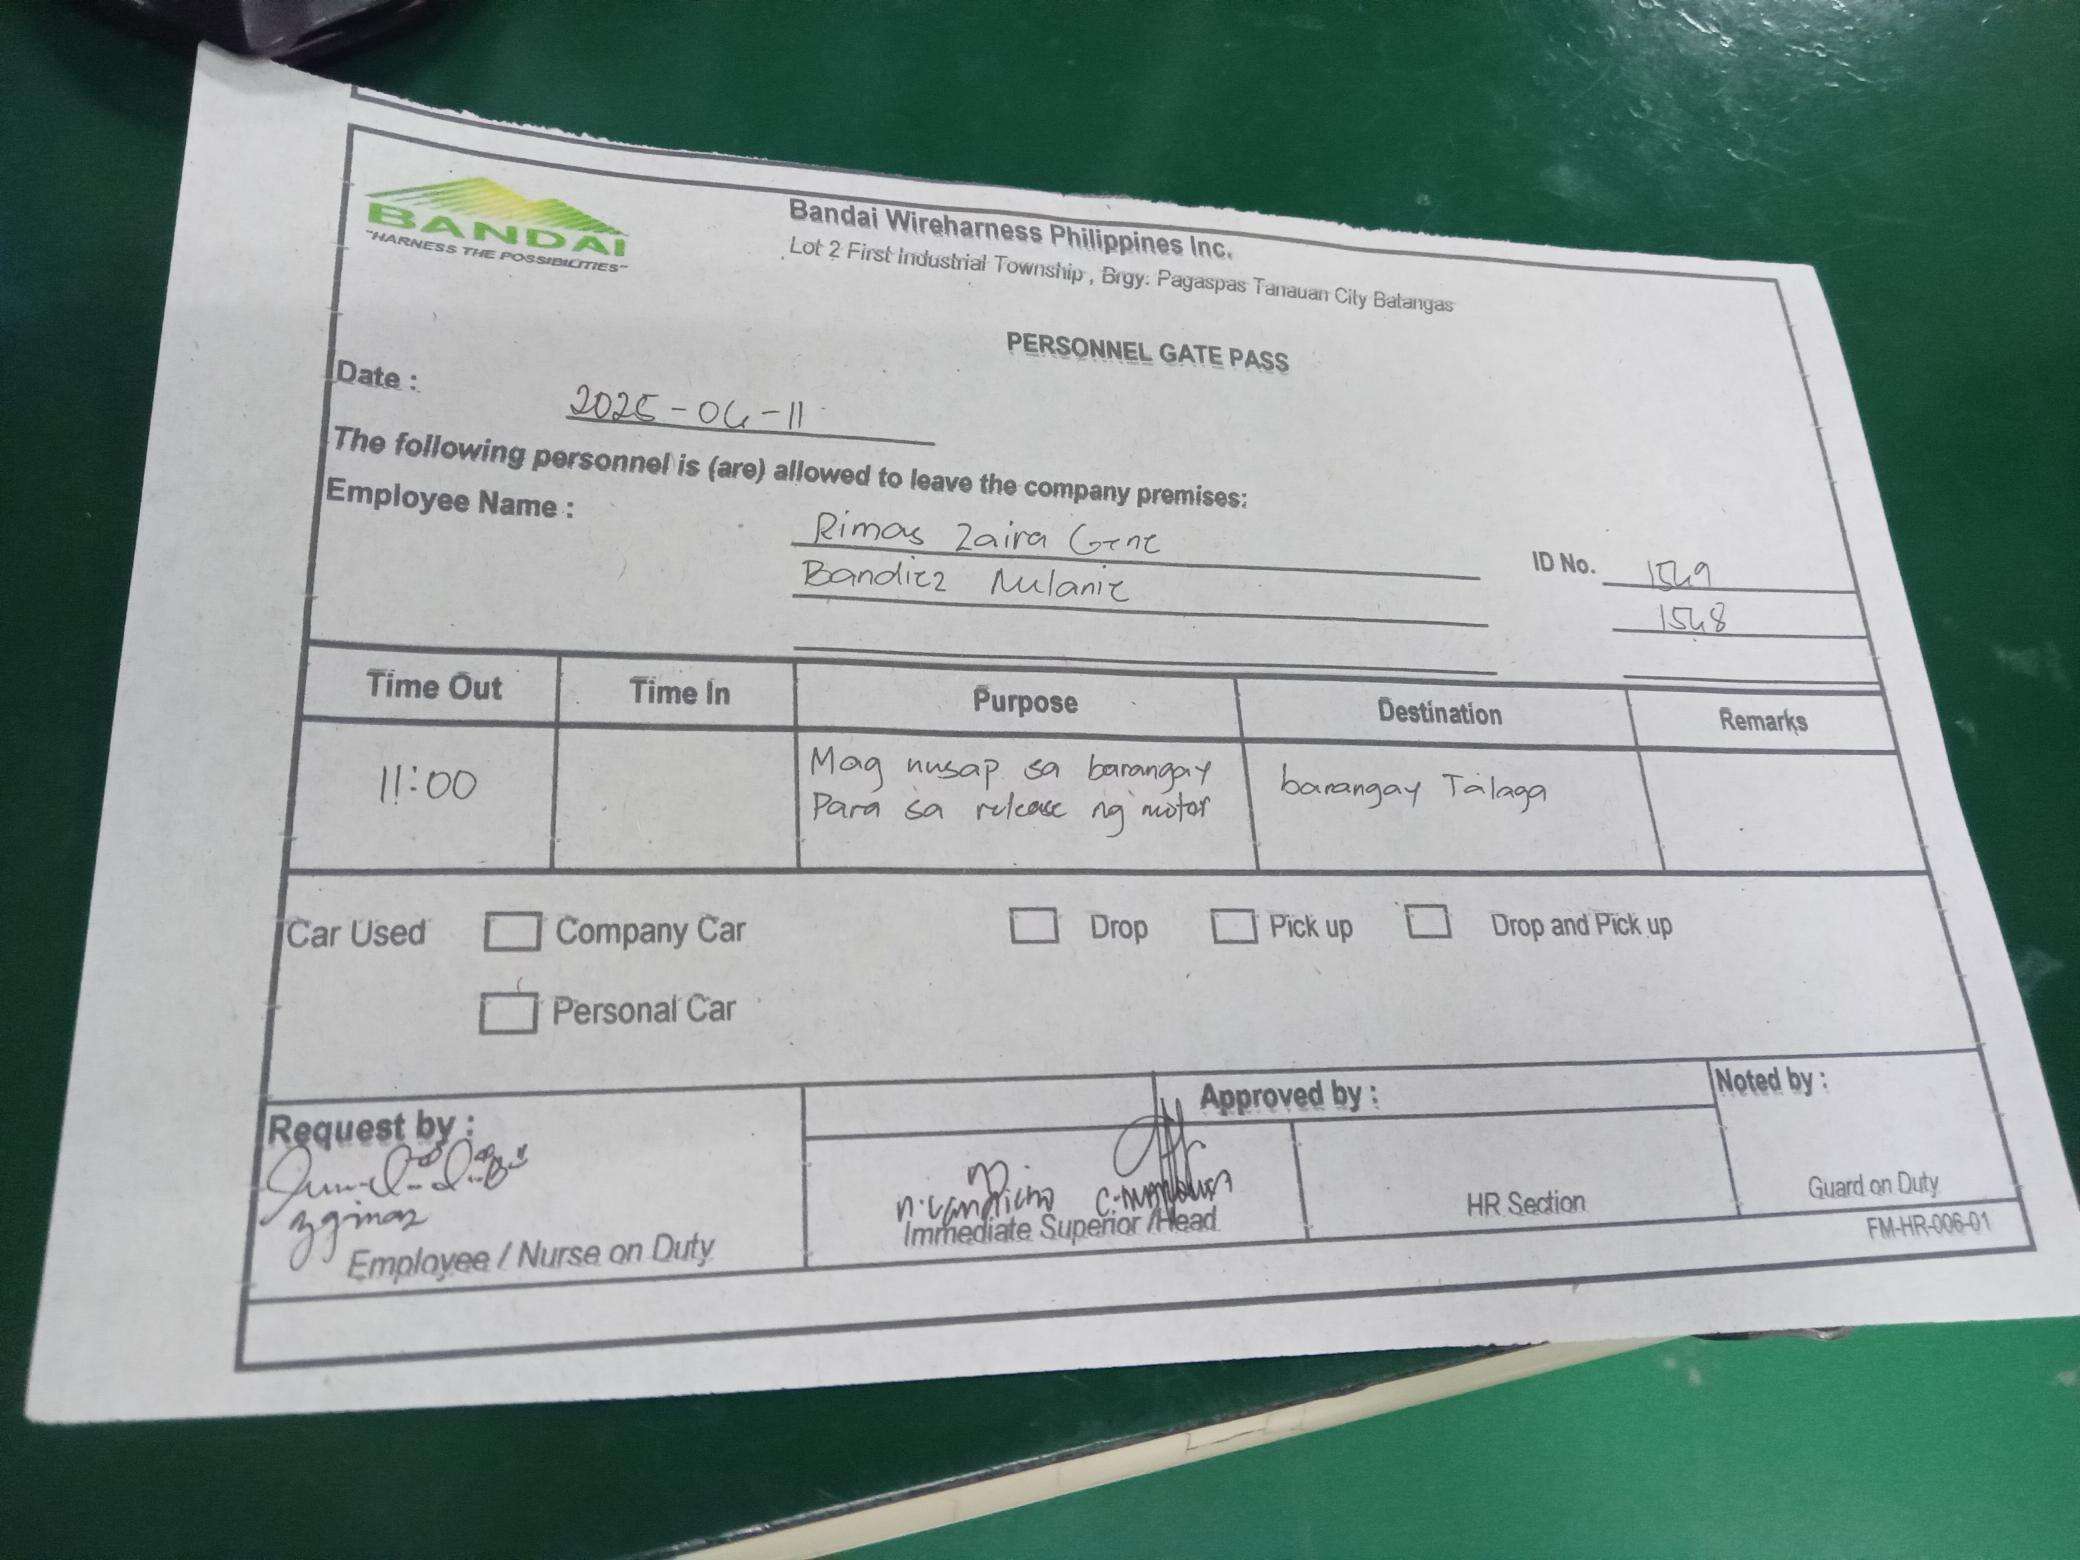 BANDAI
"HARNESS THE POSSIBILITIES"
Bandai Wireharness Philippines Inc.
Lot 2 First Industrial Township , Brgy. Pagaspas Tanauan City Batangas
PERSONNEL GATE PASS
Date : 2025-04-11
The following personnel is (are) allowed to leave the company premises:
Employee Name : Rimas Zaira Gene ID No. 1549
Bandiez Melanie 1548
Time Out Time In Purpose Destination Remarks
11:00 Mag nusap sa barangay barangay Talaga
Para sa release ng motor
Car Used Company Car Drop Pick up Drop and Pick up
Personal Car
Request by : Approved by : Noted by :
Employee / Nurse on Duty Immediate Superior /Head HR Section Guard on Duty
FM-HR-006-01